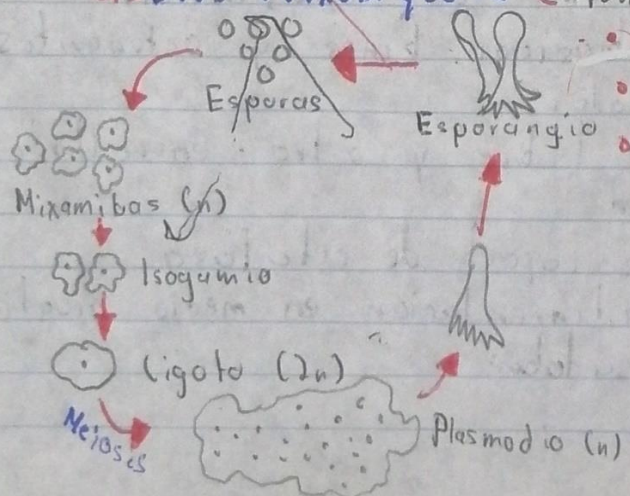 Esporas
Esporangio
Mixamibas (n)
Isogamia
Cigoto (2n)
Meiosis
Plasmodio (n)